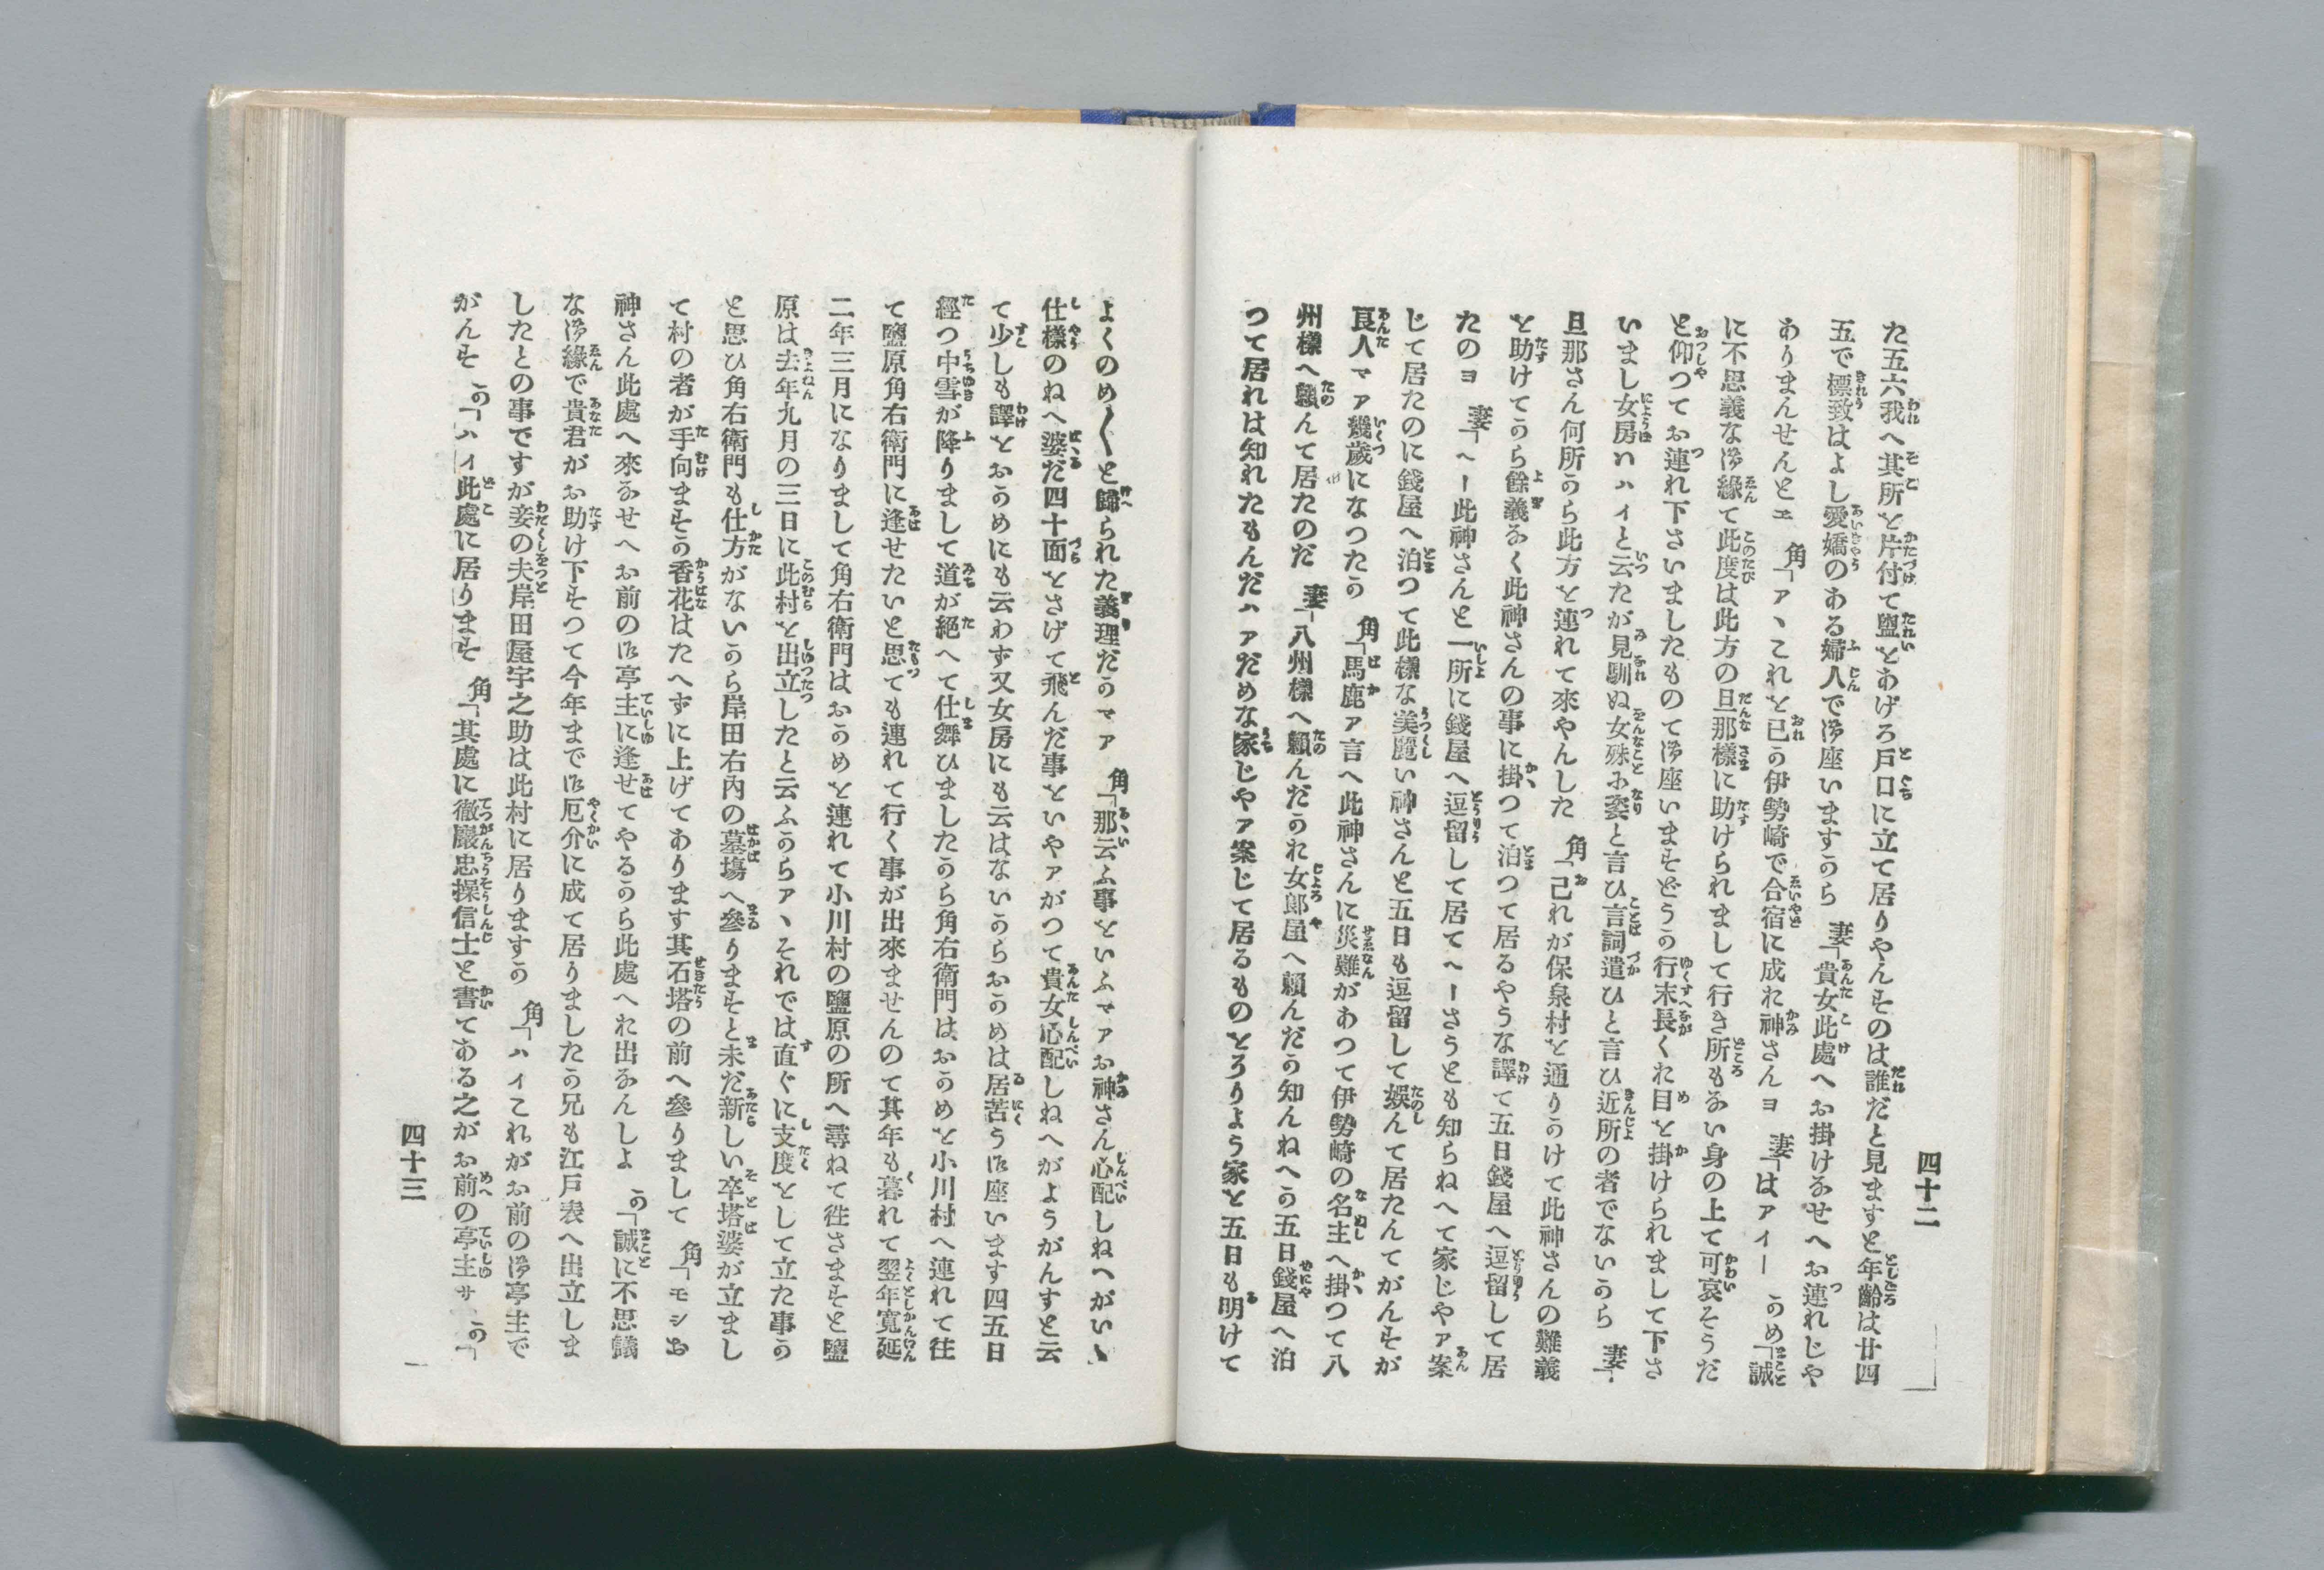 四十二
た五六我へ其所を片付て盥をあげろ戸口に立て居りやんすのは誰だと見ますと年齢は廿四
五で標致はよし愛嬌のある婦人で御座いますから　妻「貴女此處へお掛けなせへお連れじや
ありまんせんとエ　角「アヽこれを已が伊勢崎で合宿に成れ神さんヨ　妻「はアイー　かめ「誠
に不思義な御縁て此度は此方の旦那樣に助けられまして行き所もない身の上て可哀そうだ
と仰つてお連れ下さいましたものて御座いますどうか行末長くお目を掛けられまして下さ
いまし女房ハハイと云たが見馴ぬ女殊に姿と言ひ言詞遣ひと言ひ近所の者でないから　妻「
旦那さん何所から此方を連れて來やんした　角「己れが保泉村を通りかけて此神さんの難義
を助けてから餘義なく此神さんの事に掛つて泊つて居るやうな譯て五日錢屋へ逗留して居
たのヨ　妻「ヘー此神さんと一所に錢屋へ逗留して居てヘーさうとも知らねへて家じやア案
じて居たのに錢屋へ泊つて此樣な美麗い神さんと五日も逗留して娯んて居たんてがんすが
良人マア幾歳になつたか　角「馬鹿ア言へ此神さんに災難があつて伊勢崎の名主へ掛つて八
州樣へ頼んて居たのだ　妻「八州樣へ頼んだかれ女郎屋へ頼んだか知んねへが五日錢屋へ泊
つて居れは知れたもんだハアだめな家じやア案じて居るものとろりよう家を五日も明けて
よくのめ〱と歸られた義理だかマア　角「那云ふ事をいふマアお神さん心配しねへがいゝ
仕樣のねへ婆だ四十面をさげて飛んだ事をいやアがつて貴女心配しねへがようがんすと云
て少しも譯をおかめにも云わず又女房にも云はないからおかめは居苦う御座います四五日
經つ中雪が降りまして道が絕へて仕舞ひましたから角右衛門はおかめを小川村へ連れて往
て鹽原角右衛門に逢せたいと思ても連れて行く事が出來ませんので其年も暮れて翌年寛延
二年三月になりまして角右衛門はおかめを連れて小川村の鹽原の所へ尋ねて徃さますと鹽
原は去年九月の三日に此村を出立したと云ふからアヽそれでは直ぐに支度をして立た事か
と思ひ角右衛門も仕方がないから岸田右內の墓塲へ參りますと未だ新しい卒塔婆が立まし
て村の者が手向ますか香花はたへずに上げてあります其石塔の前へ參りまして　角「モシお
神さん此處へ來なせへお前の御亭主に逢せてやるから此處へれ出なんしよ　か「誠に不思議
な御縁で貴君がお助け下すつて今年まで御厄介に成て居りましたか兄も江戸表へ出立しま
したとの事ですが妾の夫岸田屋宇之助は此村に居りますか　角「ハイこれがお前の御亭主で
がんす　か「ハイ此處に居ります　角「其處に徹巖忠操信士と書てある之がお前の亭主サ　か「
四十三